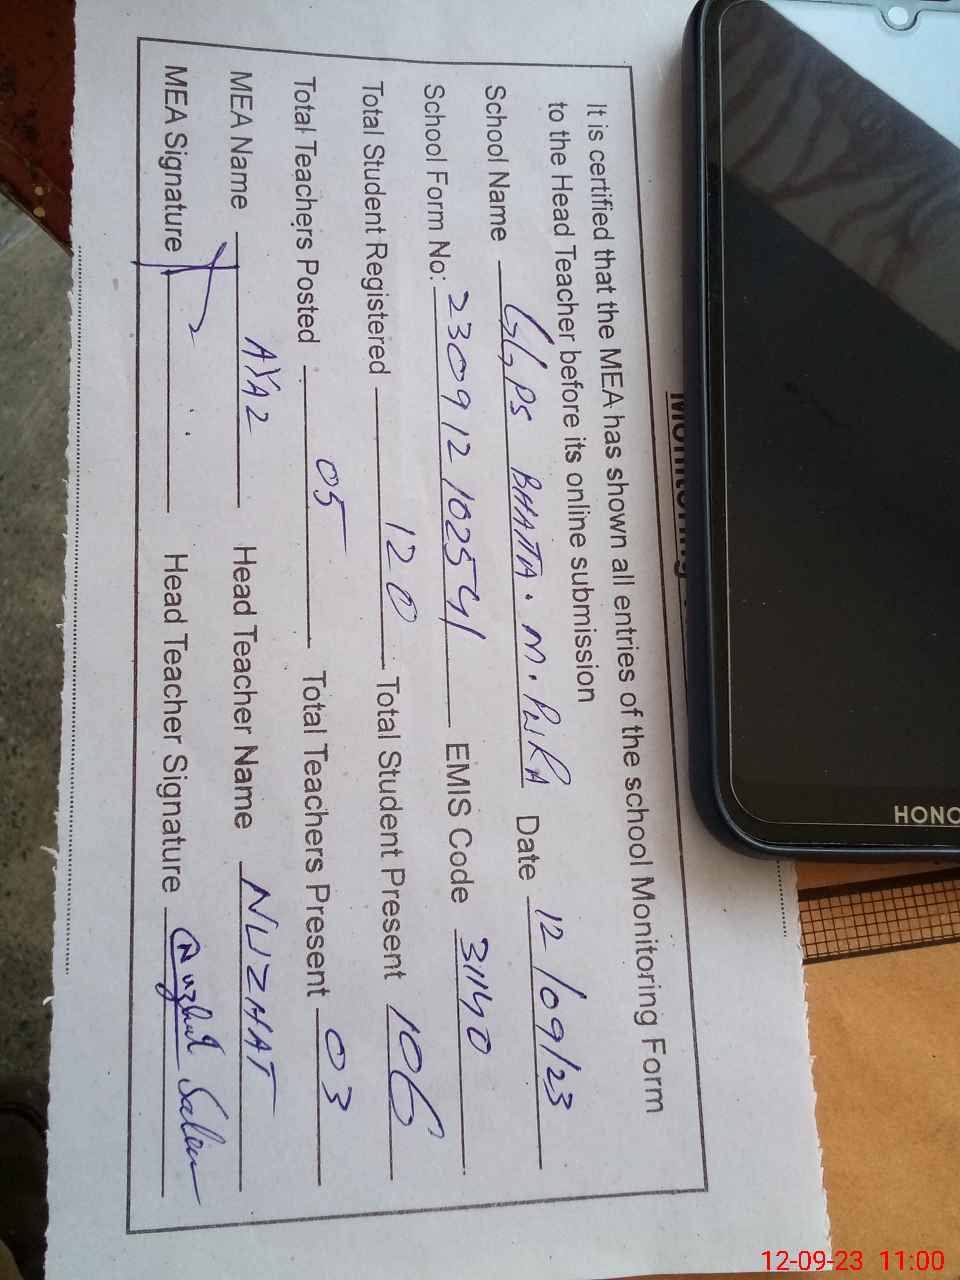 Monitoring
It is certified that the MEA has shown all entries of the school Monitoring Form
to the Head Teacher before its online submission
School Name GGPS BHATTA . M . PURA Date 12/09/23
School Form No: 230912102541 EMIS Code 31140
Total Student Registered 120 Total Student Present 106
Total Teachers Posted 05 Total Teachers Present 03
MEA Name AYAZ Head Teacher Name NUZHAT
MEA Signature Head Teacher Signature Nuzhat Saleem
HONO
12-09-23 11:00